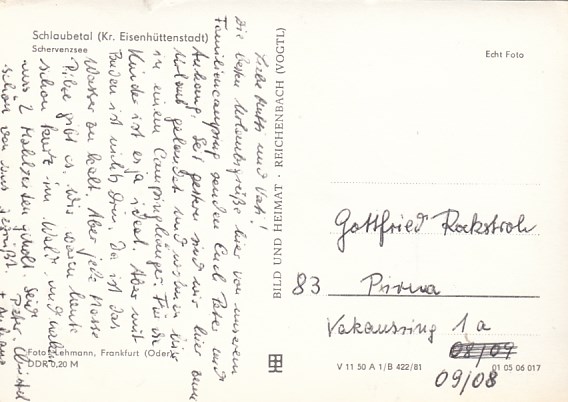 Schlaubetal (Kr. Eisenhüttenstadt)
Schervenzsee
Liebe Mutti und Vati!
Die besten Urlaubsgrüße hier von unserem
Familiencamping senden Euch Peter und
Anhang. Seit gestern sind wir hier zum
Urlaub gelandet und wohnen hier
in einem Campinghänger. Für die
Kinder ist es ja ideal. Aber mit
Baden ist nichts drin. Da ist das
Wasser zu kalt. Aber jede Masse
Pilze gibt es. Wir waren heute
schon heute im Wald und haben
uns 2 Mahlzeiten geholt. Seid
schön von uns gegrüßt.
Peter, Christel
+ Anhang
Foto: Lehmann, Frankfurt (Oder)
DDR 0,20 M
BILD UND HEIMAT · REICHENBACH (VOGTL)
Echt Foto
Gottfried Rockstroh
83 Pirna
Varkausring 1 a
08/09
09/08
V 11 50 A 1/B 422/81
01 05 06 017